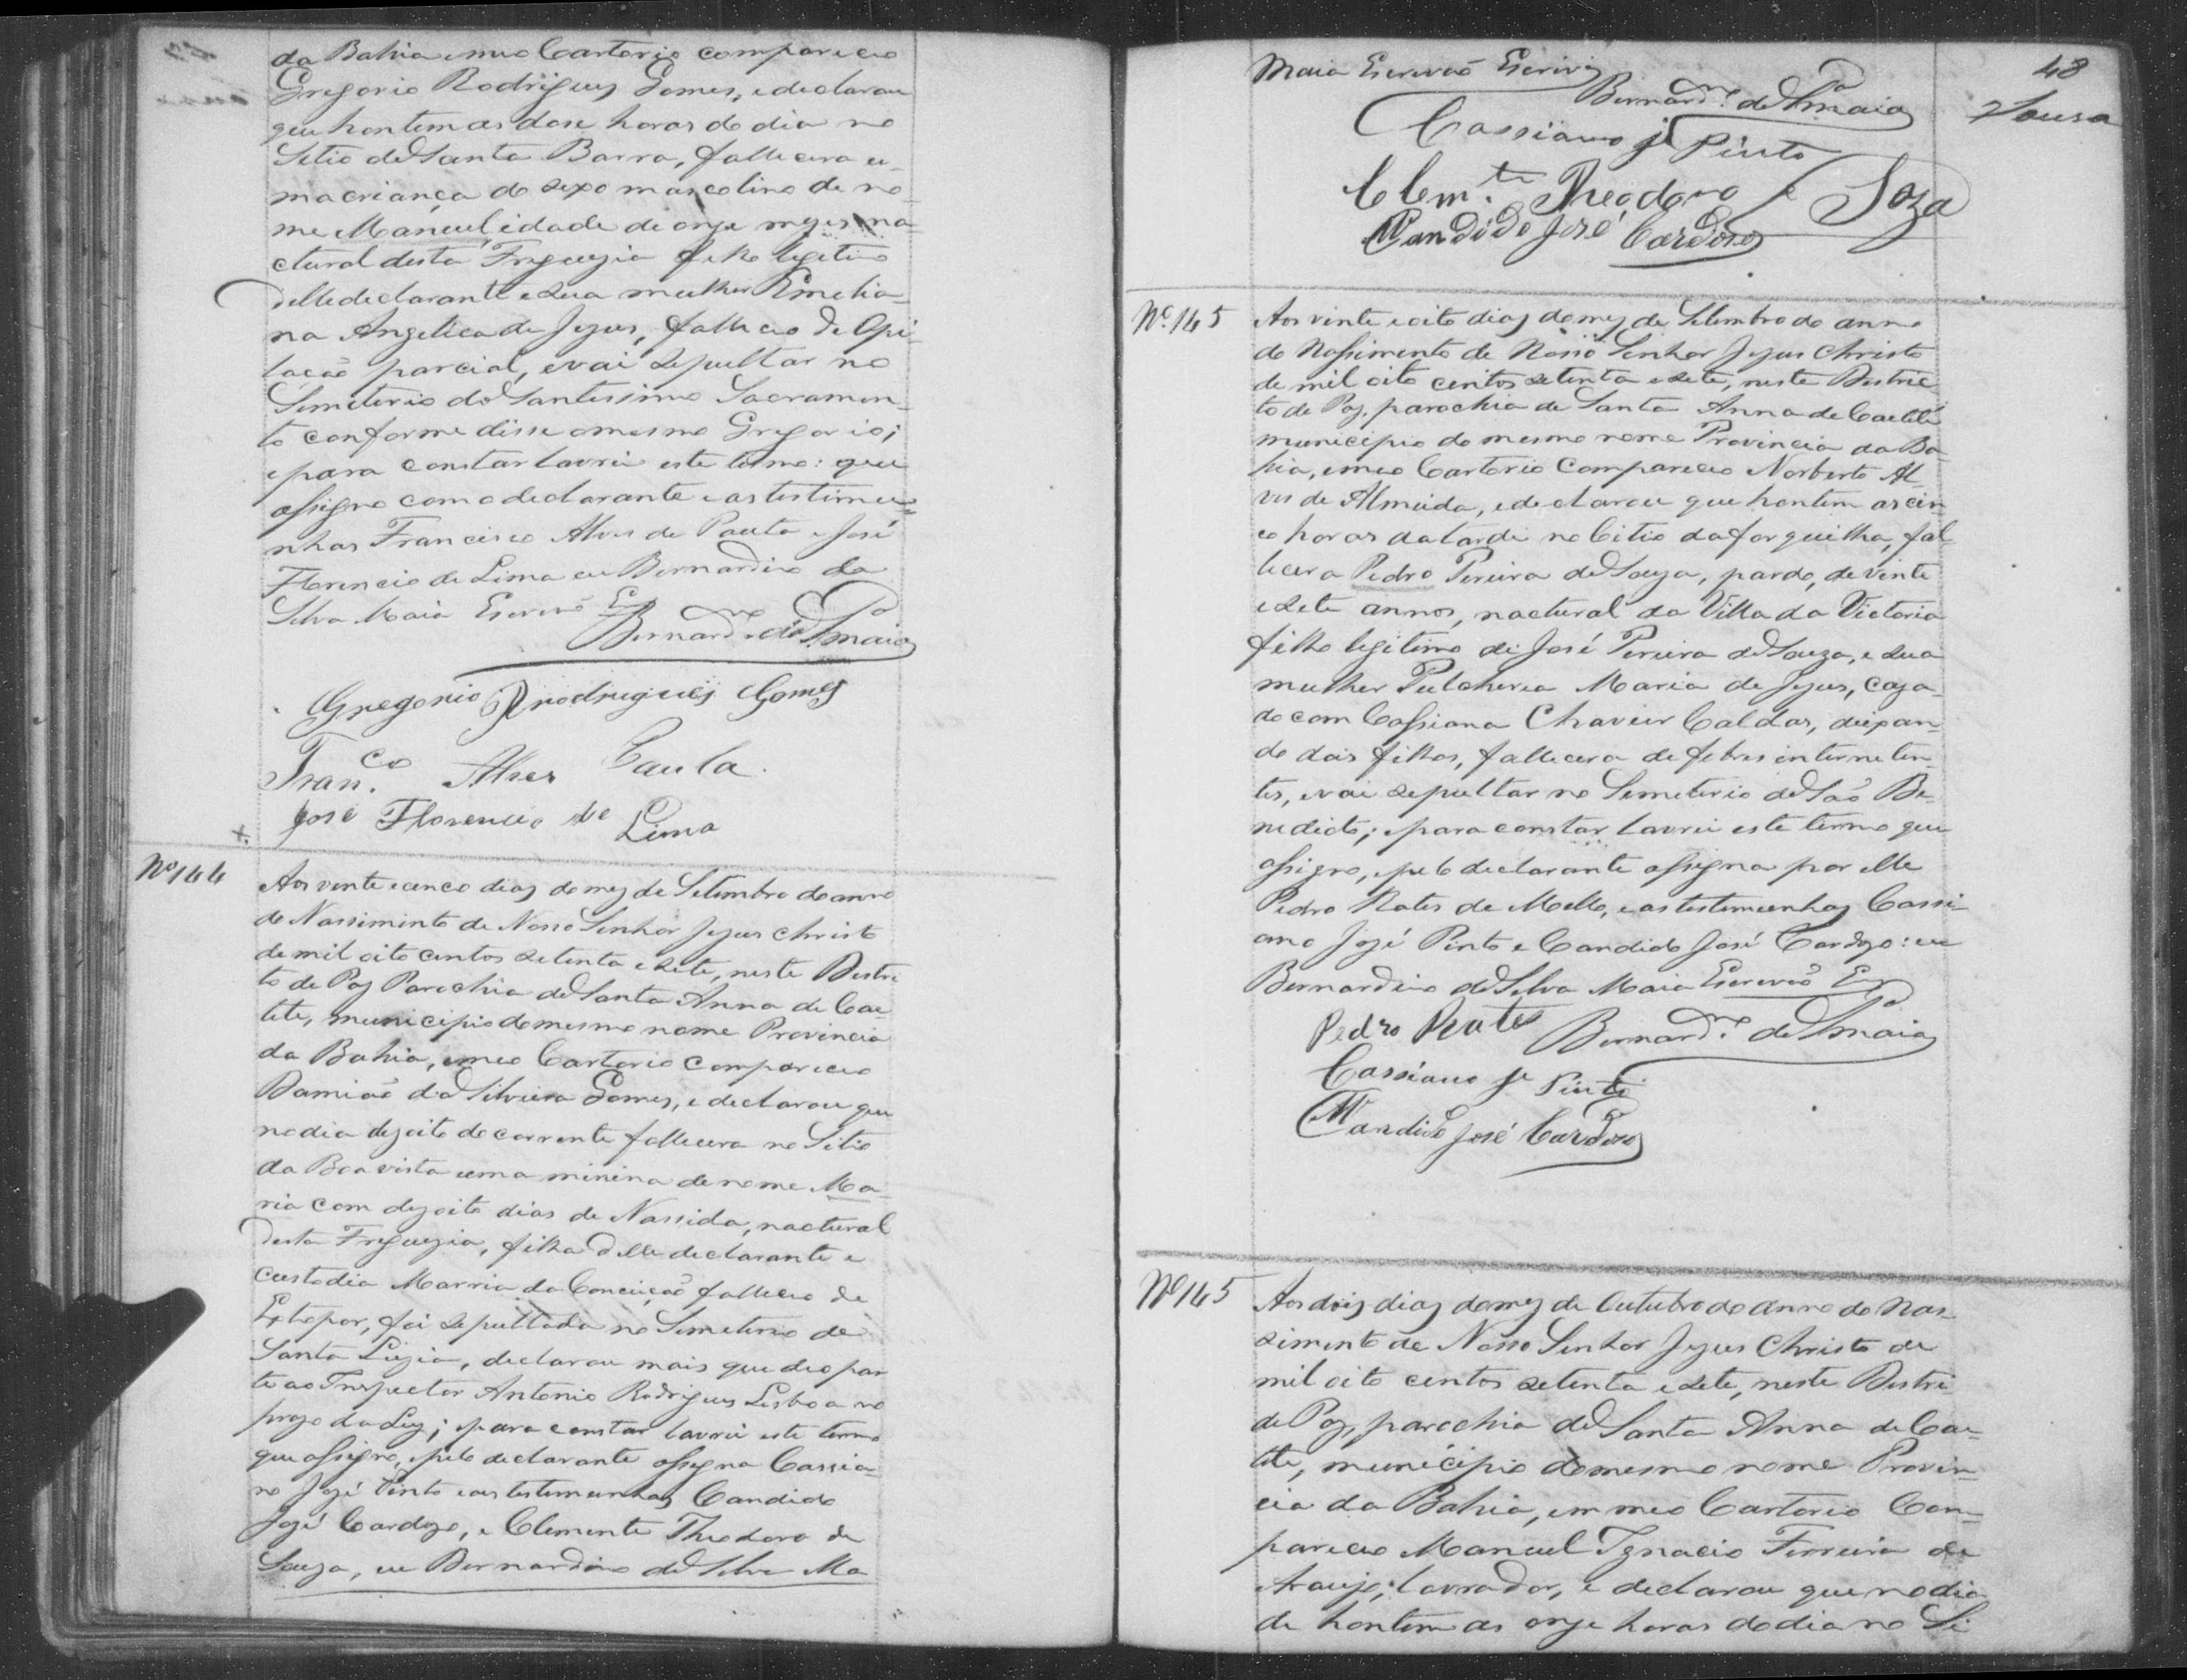 da Bahia em meo Cartorio compareceo
Gregorio Rodrigues Gomes, e declarou
que hontem as dose horas do dia no
Setio de Santa Barra, fallecera u-
ma criança do sexo mascolino de no-
me Manuel idade de onze mezes na-
ctural desta Freguezia filho legetimo
delle declarante e sua mulher Emelia-
na Angelica de Jezus, falleceo de Opi-
lação parcial, e vai sepultar no
Semeterio do Santissimo Sacramen-
to conforme disse o mesmo Gregorio;
e para constar lavrei este termo: que
assigno com o declarante e as testimu-
nhas Francisco Alves de Paula e José
Florencio de Lima eu Bernardino da
Silva Maia Escrivão
Bernard.no da S.a Maia
Gregorio Rrodrugues Gomes
Fran.co Alves Paula.
José Florencio de
Lima
Nº 144
Aos vente e cenco dias do mez de Setembro do anno
do Nassimento de Nosso Senhor Jezus Christo
de mil oito centos setenta e sete, neste Destri-
to de Paz Parochia de Santa Anna de Cae-
tete, municipio do mesmo nome Provincia
da Bahia, em meo Cartorio compareceo
Damião da Silveira Gomes, e declarou que
no dia dezoito do corrente fallecera no Sitio
da Boa vista uma minina de nome Ma-
ria com dezoito dias de Nassida, nactural
desta Freguezia, filha delle declarante e
Custodia Marria da Conceição falleceo de
Estopor, foi sepultada no Semeterio de
Santa Luzia, declarou mais que deo par
te ao Inspector Antonio Rodrigues Lisboa no
prazo da Ley; e para constar lavrei este termo
que assigno, e pelo declarante assigna Cassia-
no Jozé Pinto e as testemunhas Candido
Jozé Cardozo, e Clemente Theodoro de
Souza, eu Bernardino da Silva Ma
48
Sousa
Maia Escrevão Escrivi
Bernard.no da S.a Maia
Cassiano Je Pinto
Clem.te Theodoro e Soza
Candido José Cardoso
Nº 145
Aos vinte e oito dias do mez de Setembro do anno
do Nassimento de Nosso Senhor Jezus Christo
de mil oito centos setenta e sete, neste Destric
to de Paz, parochia de Santa Anna de Caetité
municipio do mesmo nome Provincia da Ba
hia, em meo Cartorio compareceo Norberto Al-
ves de Almeida, e declarou que hontem as cin
co horas da tarde no Citio da forquilha, fal-
lecera Pedro Pereira de Souza, pardo, de vinte
e sete annos, nactural da Villa da Victoria
filho legitimo de José Pereira de Souza, e sua
mulher Pulcheria Maria de Jezus, caza-
do com Cassiana Chavier Caldas, deixan-
do dois filhos, fallecera de febres intermeten-
tes, e vai sepultar no Semeterio de São Be-
nedicto; e para constar lavrei este termo que
assigno, e pelo declarante assigna por elle
Pedro Rates de Mello, e as testemunhas Cassi-
ano Jozé Pinto e Candido José Cardozo: eu
Bernardino da Silva Maia Escrevão
Pedro Rates Bernard.no da S.a Maia
Cassiano Je Pinto
Candido José Cardoso
Nº 145
Aos dois dias do mez de Outubro do anno do Nas-
simento de Nosso Senhor Jezus Christo de
mil oito centos setenta e sete, neste Destri
de Paz, parochia de Santa Anna de Cae-
tite, municipio do mesmo nome Provin-
cia da Bahia, em meo Cartorio Com-
pareceo Manuel Ignacio Ferreira de
Araujo; lavrador, e declarou que no dia
de hontem as onze horas do dia no Si